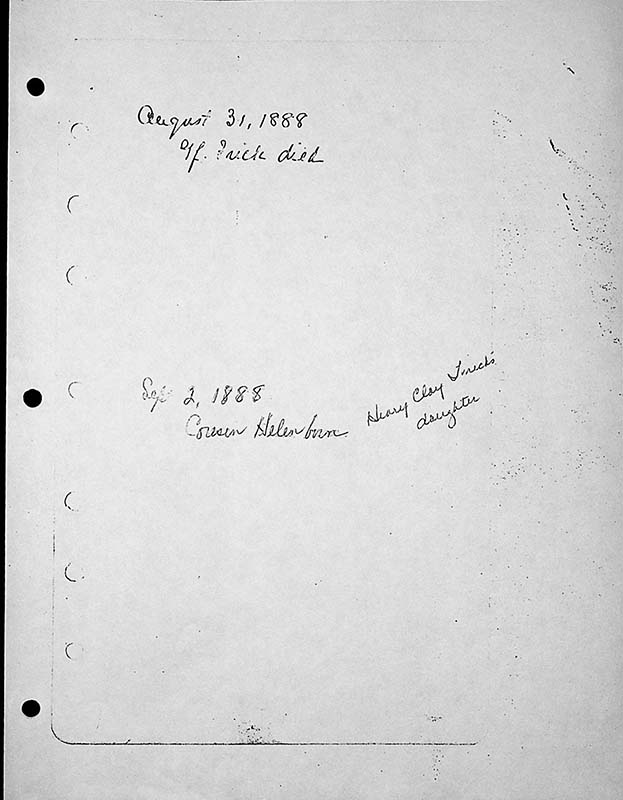 August 31, 1888
Gf. Frick died
Sep 2, 1888
Cousin Helen born
Henry Clay Frick's
daughter